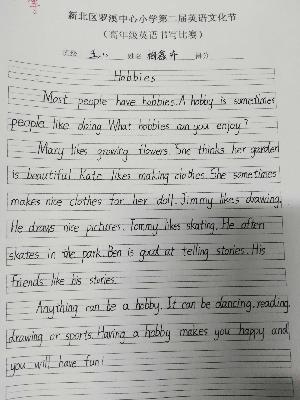 新北区罗溪中心小学第二届英语文化节
（高年级英语书写比赛）
班级 五 姓名 得分
Hobbies
Most people have hobbies. A hobby is sometimes
people like doing. What hobbies can you enjoy?
Mary likes growing flowers. She thinks her garden
is beautiful. Kate likes making clothes. She sometimes
makes nice clothes for her doll. Jimmy likes drawing.
He draws nice pictures. Tommy likes skating. He often
skates in the park. Ben is good at telling stories. His
friends like his stories.
Anything can be a hobby. It can be dancing, reading,
drawing or sports. Having a hobby makes you happy and
you will have fun!